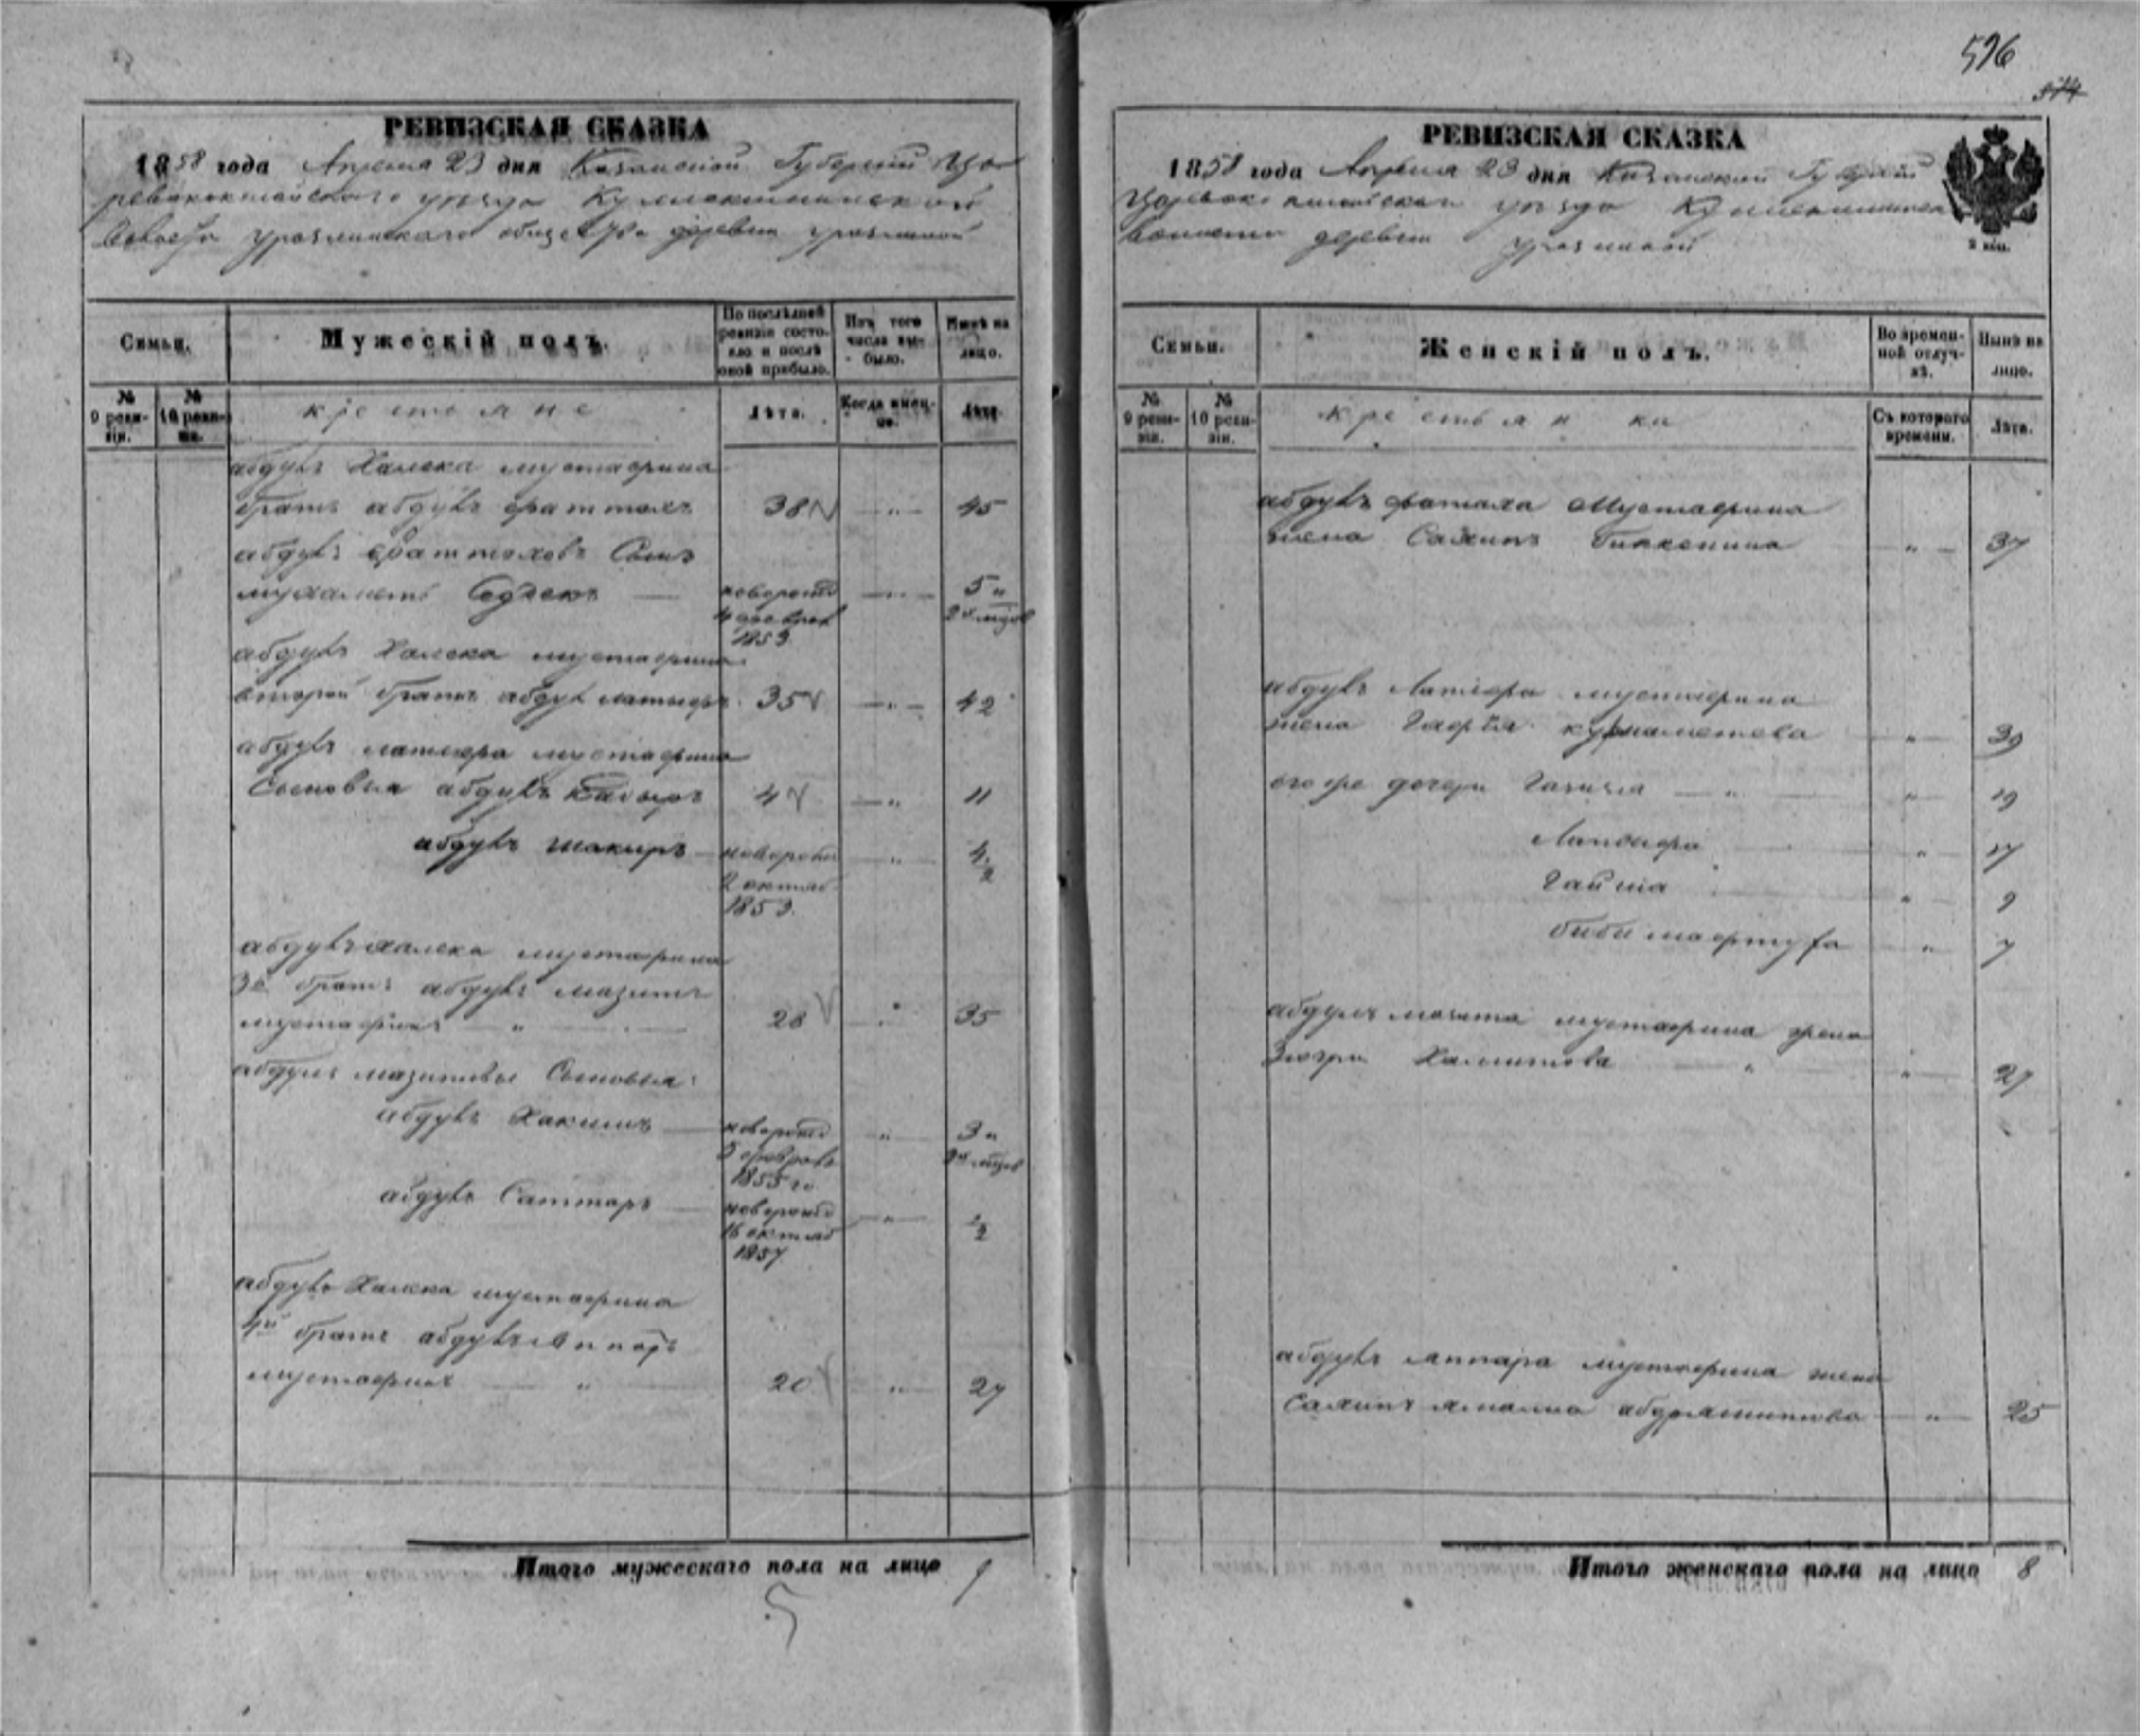 596
574
РЕВИЗСКАЯ СКАЗКА
1858 года Апреля 23 дня Казанской Губернии Ца-
ревококшайскаго уезда
общества деревни
Семьи.
Мужескій полъ.
По послѣдней ревизіи состояло и послѣ оной прибыло.
Изъ того числа выбыло.
Нынѣ на лицо.
№ 9 ревизіи.
№ 10 ревизіи.
крестьяне
Лѣта.
Когда именно.
Лѣта.
абдулъ Халека мустафина
братъ абдулъ фаттахъ 38 — " — 45
абдулъ фаттаховъ Сынъ
мухаметъ Садекъ — новорожд — " — 5 "
4 феврал 2 1/2 мцов
1853.
абдулъ Халека мустафина
второй братъ абдул латыфъ 35 — " — 42
абдулъ латыфа мустафина
Сыновья абдулъ Кабыръ 4 — " 11
абдулъ шакиръ — новорожд — " — 4 1/2
2 октяб
1853.
абдулъ халека мустафина
3й братъ абдулъ мазитъ
мустафинъ — " — 28 — " — 35
абдулъ мазитовы Сыновья:
абдулъ Хакимъ — новорожд " — 3 "
5 феврал мцов
1855 го
абдулъ Саттаръ — новорожд — " — 1/2
16 октяб
1857
абдулъ Халека мустафина
4й братъ абдулъ
мустафинъ — " — 20 " — 27
Итого мужескаго пола на лицо 9
5
РЕВИЗСКАЯ СКАЗКА
1858 года Апреля 23 дня Казанской Губерніи
Царевококшайскаго уезда
волости деревни
2 коп.
Семьи.
Женскій полъ.
Во временной отлучкѣ.
Нынѣ на лицо.
№ 9 ревизіи.
№ 10 ревизіи.
крестьян ка
Съ котораго времени.
Лѣта.
абдулъ фаттаха Мустафина
жена Сахипъ Биккенина " — 37
абдулъ Латыфа мустафина
жена Гафія курмаметева " — 39
его же дочери Газиза — " — " — 19
Латыфа " — 17
Гайша " — 9
биби мафтуха — " — 7
абдулъ мазита мустафина жена
Зюгри Халитова " " — 27
абдулъ мустафина жена
Сахипъ абдрашитова — " — 25
Итого женскаго пола на лицо 8